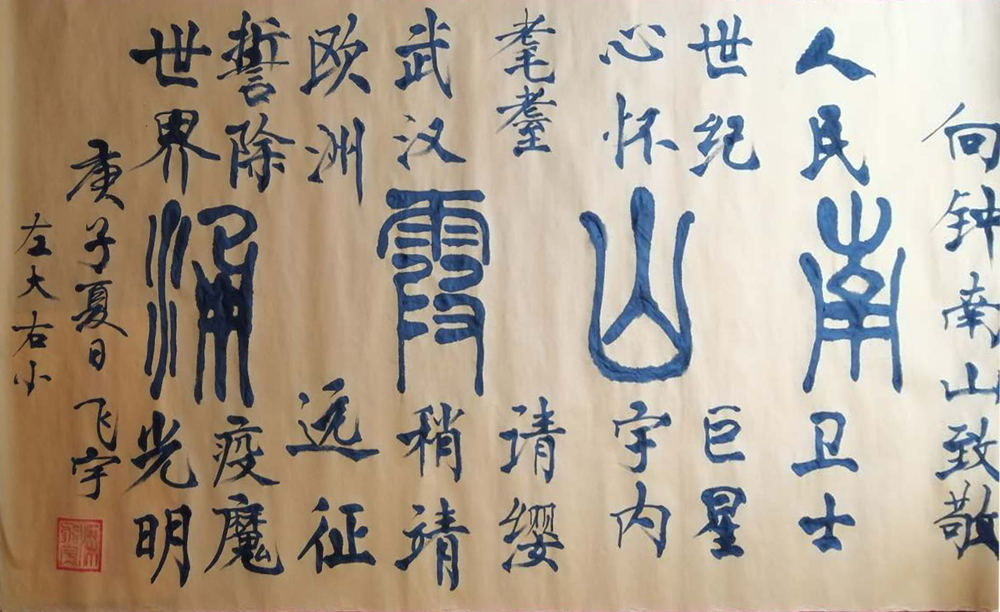 向钟南山致敬
人民南卫士
世纪巨星
心怀山宇内
耄耋请缨
武汉霞稍靖
欧洲远征
誓除涌疫魔
世界光明
庚子夏日飞宇
左大右小